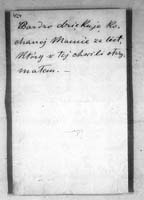 Bardzo dziękuję Ko-
chanej Mamie za list,
który w tej chwili otrzy-
małem. —